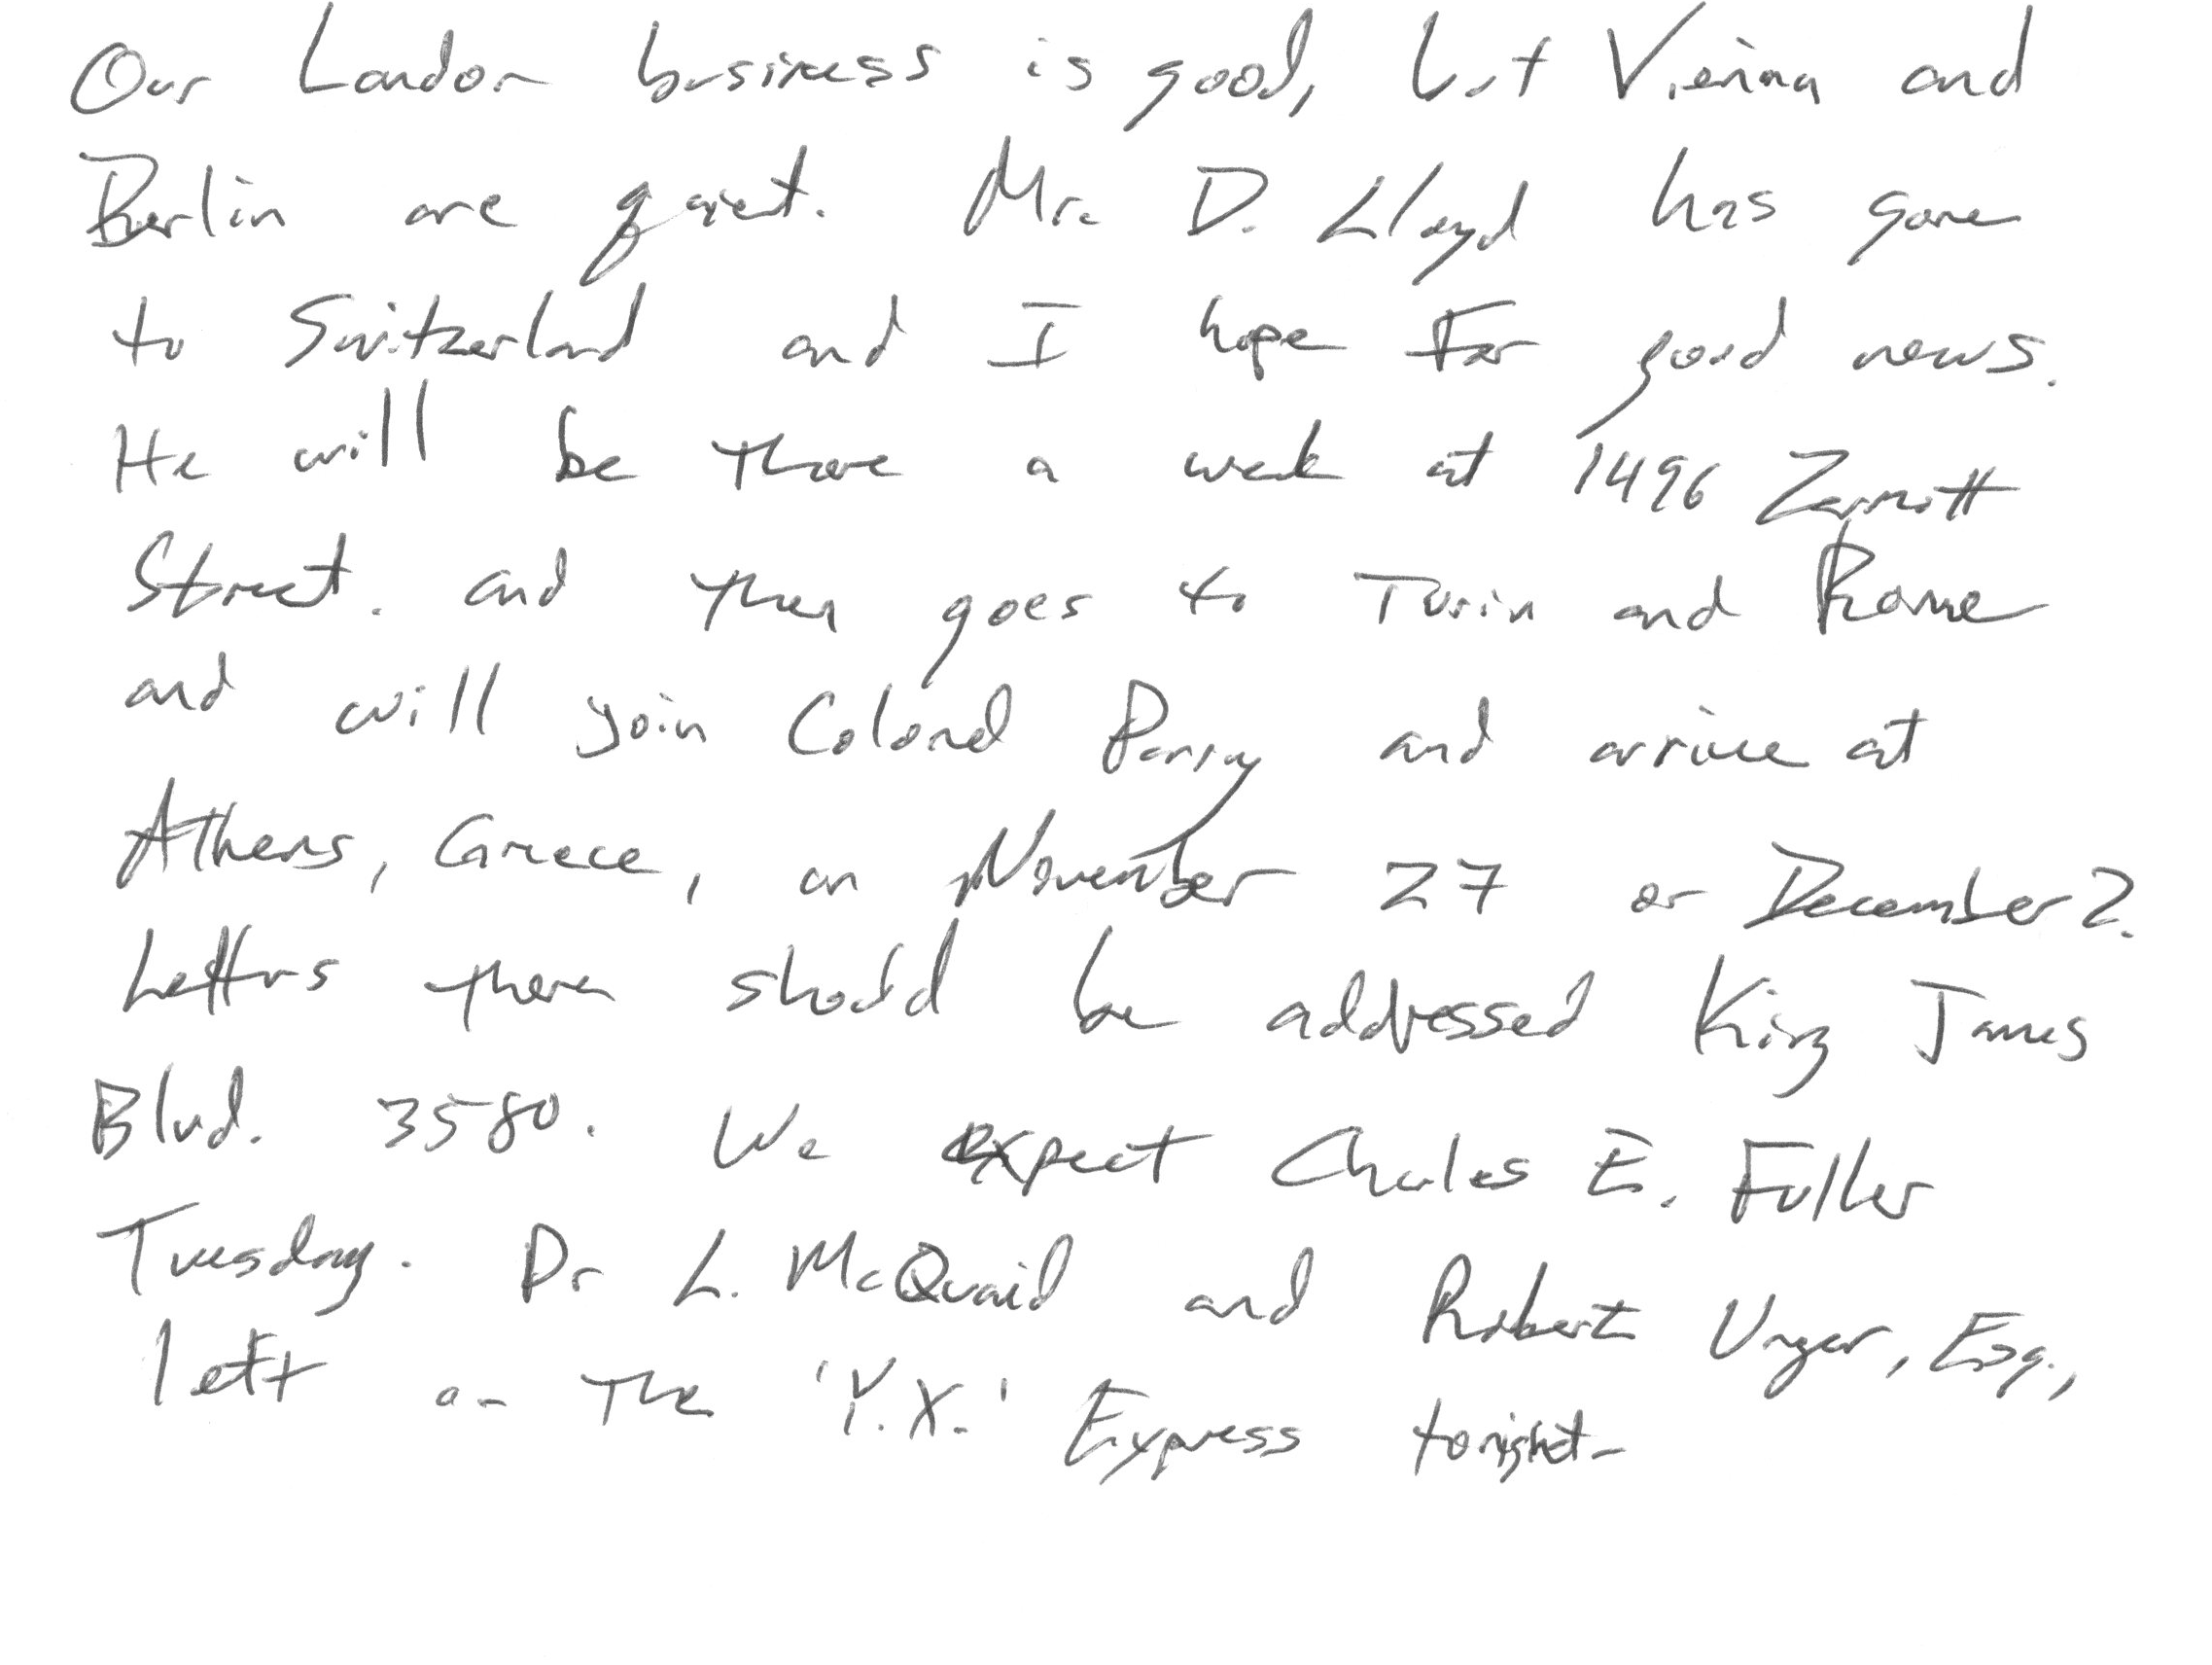 Our London business is good, but Vienna and
Berlin are quiet. Mr. D. Lloyd has gone
to Switzerland and I hope for good news.
He will be there a week at 1496 Zermott
Street. and then goes to Turin and Rome
and will join Colonel Parry and arrive at
Athens, Greece, on November 27 or December 2.
Letters there should be addressed King James
Blvd. 3580. We expect Charles E. Fuller
Tuesday. Dr L. McQuaid and Robert Unger, Esq.,
left on the 'Y.X.' Express tonight.